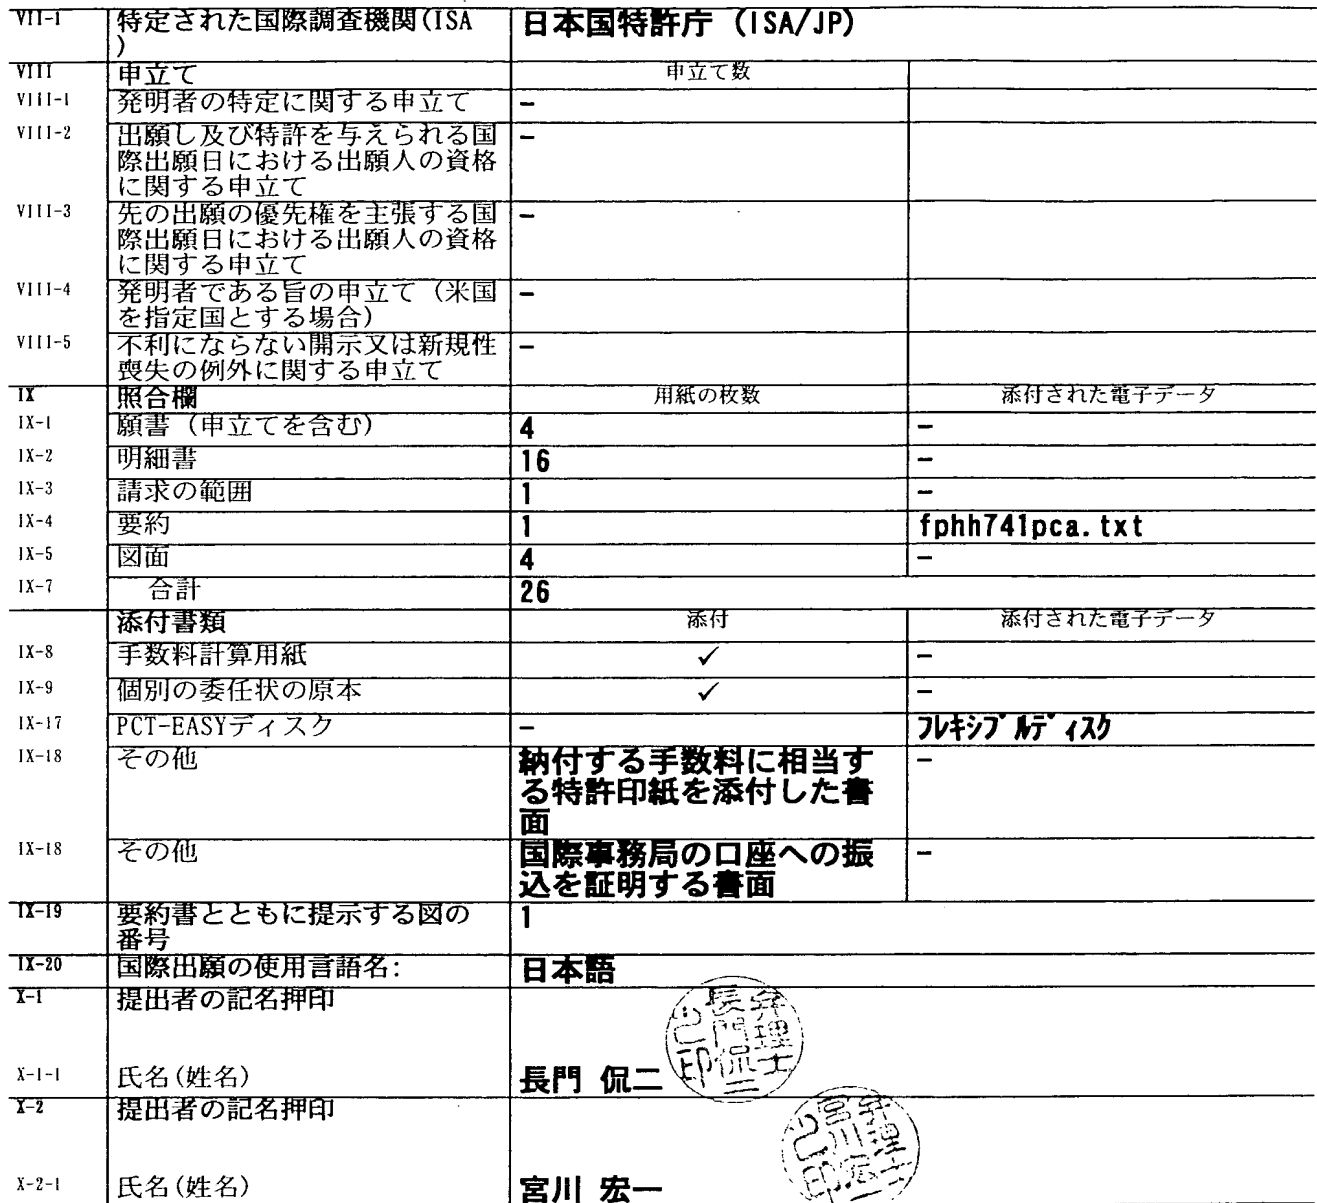 VII-1 特定された国際調査機関(ISA 日本国特許庁 (ISA/JP)
)
VIII 申立て 申立て数
VIII-1 発明者の特定に関する申立て –
VIII-2 出願し及び特許を与えられる国 –
際出願日における出願人の資格
に関する申立て
VIII-3 先の出願の優先権を主張する国 –
際出願日における出願人の資格
に関する申立て
VIII-4 発明者である旨の申立て（米国 –
を指定国とする場合）
VIII-5 不利にならない開示又は新規性 –
喪失の例外に関する申立て
IX 照合欄 用紙の枚数 添付された電子データ
IX-1 願書（申立てを含む） 4 –
IX-2 明細書 16 –
IX-3 請求の範囲 1 –
IX-4 要約 1 fphh741pca.txt
IX-5 図面 4 –
IX-7 合計 26
添付書類 添付 添付された電子データ
IX-8 手数料計算用紙 ✓ –
IX-9 個別の委任状の原本 ✓ –
IX-17 PCT-EASYディスク – ﾌﾚｷｼﾌﾞﾙﾃﾞｨｽｸ
IX-18 その他 納付する手数料に相当す –
る特許印紙を添付した書
面
IX-18 その他 国際事務局の口座への振 –
込を証明する書面
IX-19 要約書とともに提示する図の 1
番号
IX-20 国際出願の使用言語名: 日本語
X-1 提出者の記名押印
弁理士
長門侃二
之印
X-1-1 氏名(姓名) 長門 侃二
X-2 提出者の記名押印
弁理士
宮川宏一
之印
X-2-1 氏名(姓名) 宮川 宏一